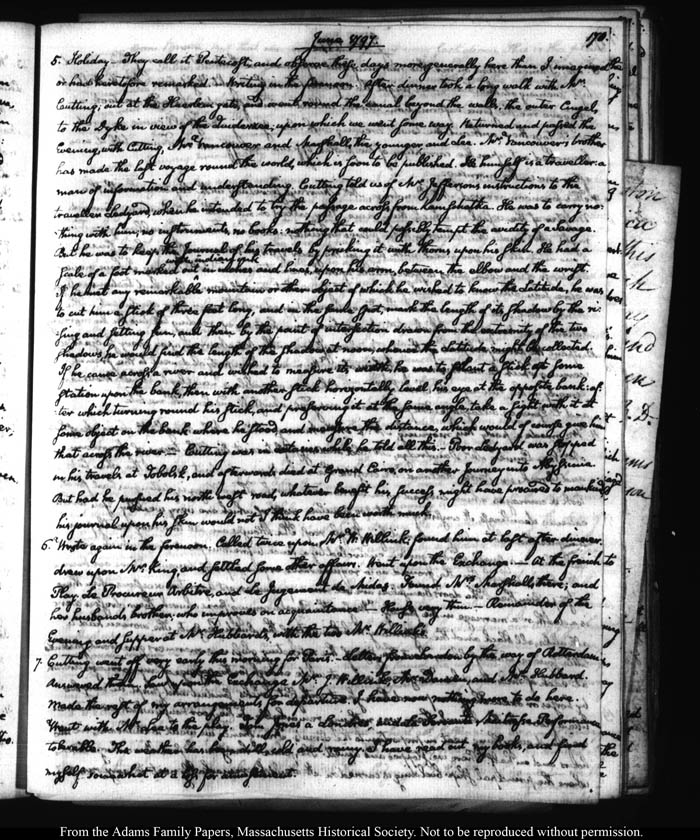 June 1797.
5. Holiday. They call it Pentecost, and observe these days more generally here than I imagined the
or had heretofore remarked. Writing in the forenoon. After dinner took a long walk with Mr:
Cutting, out at the Haerlem gate, and went round the canal beyond the walls, the outer Cingel,
to the Dyke in view of the , upon which we went some way. Returned and passed the
Evening, with Cutting, Mr: Vancouver and Marshall, the younger, and Lee. Mr: Vancouver's brother
has made the last voyage round the world, which is soon to be published. He himself is a traveller: a
man of information and understanding. Cutting told us of Mr: Jefferson's instructions to the
traveller Ledyard, when he intended to try the passage across from Kamschatka. He was to carry no-
thing with him; no instruments, no books: nothing that could possibly tempt the avidity of a savage.
But he was to keep the Journal of his travels by pricking it with thorns upon his skin. He had a
with indian ink
scale of a foot marked out in inches and lines, upon his arm, between the elbow and the wrist.
If he met any remarkable mountain or other object of which he wished to know the latitude, he was
to cut him a stick of three feet long, and in the same spot, mark the length of its shadow by the ri-
sing and setting sun, and then by the point of intersection drawn from the extremity of the two
shadows, he would find the length of the shadow at noon, whence the latitude might be collected.
If he came across a river and wished to measure its width, he was to plant a stick at some
station upon the bank, then with another stick horizontally level his eye at the opposite bank: af-
ter which turning round his stick, and preserving it at the same angle, take a sight with it at
some object on the bank where he stood, and measure this distance, which would of course give him
that across the river — Cutting was in extasies while he told all this. — Poor Ledyard was stopped
in his travels at Tobolsk, and afterwards died at Grand Cairo, on another journey into Abyssinia.
But had he pursued his north west road, whatever benefit his success might have procured to mankind
his journal upon his skin would not I think have been worth much.
6. Wrote again in the forenoon. Called twice upon Mr: W. Willink; found him at last after dinner.
drew upon Mr: King and settled some other affairs. Went upon the Exchange. — At the french to
Play. Le Procureur Arbitre, and Le Jugement de Midas. Found Mrs: Marshall, there; and
her husband's brother, who improves on acquaintance — House very thin — Remainder of the
Evening and supper at Mr: Hubbard's, with the two Mr: Willinks.
7. Cutting went off very early this morning for Paris. Letters from London by the way of Rotterdam.
Answered them here. On the Exchange Mr: J. Willink, Mr: , and Mr: Hubbard.
Made the rest of my arrangements for departure. I have now nothing more to do here.
Went with Mr: Lee to the play. Performance
tolerable. The weather has been dull, cold and rainy. I have read out my books, and find
myself somewhat at a loss for amusement.
From the Adams Family Papers, Massachusetts Historical Society. Not to be reproduced without permission.